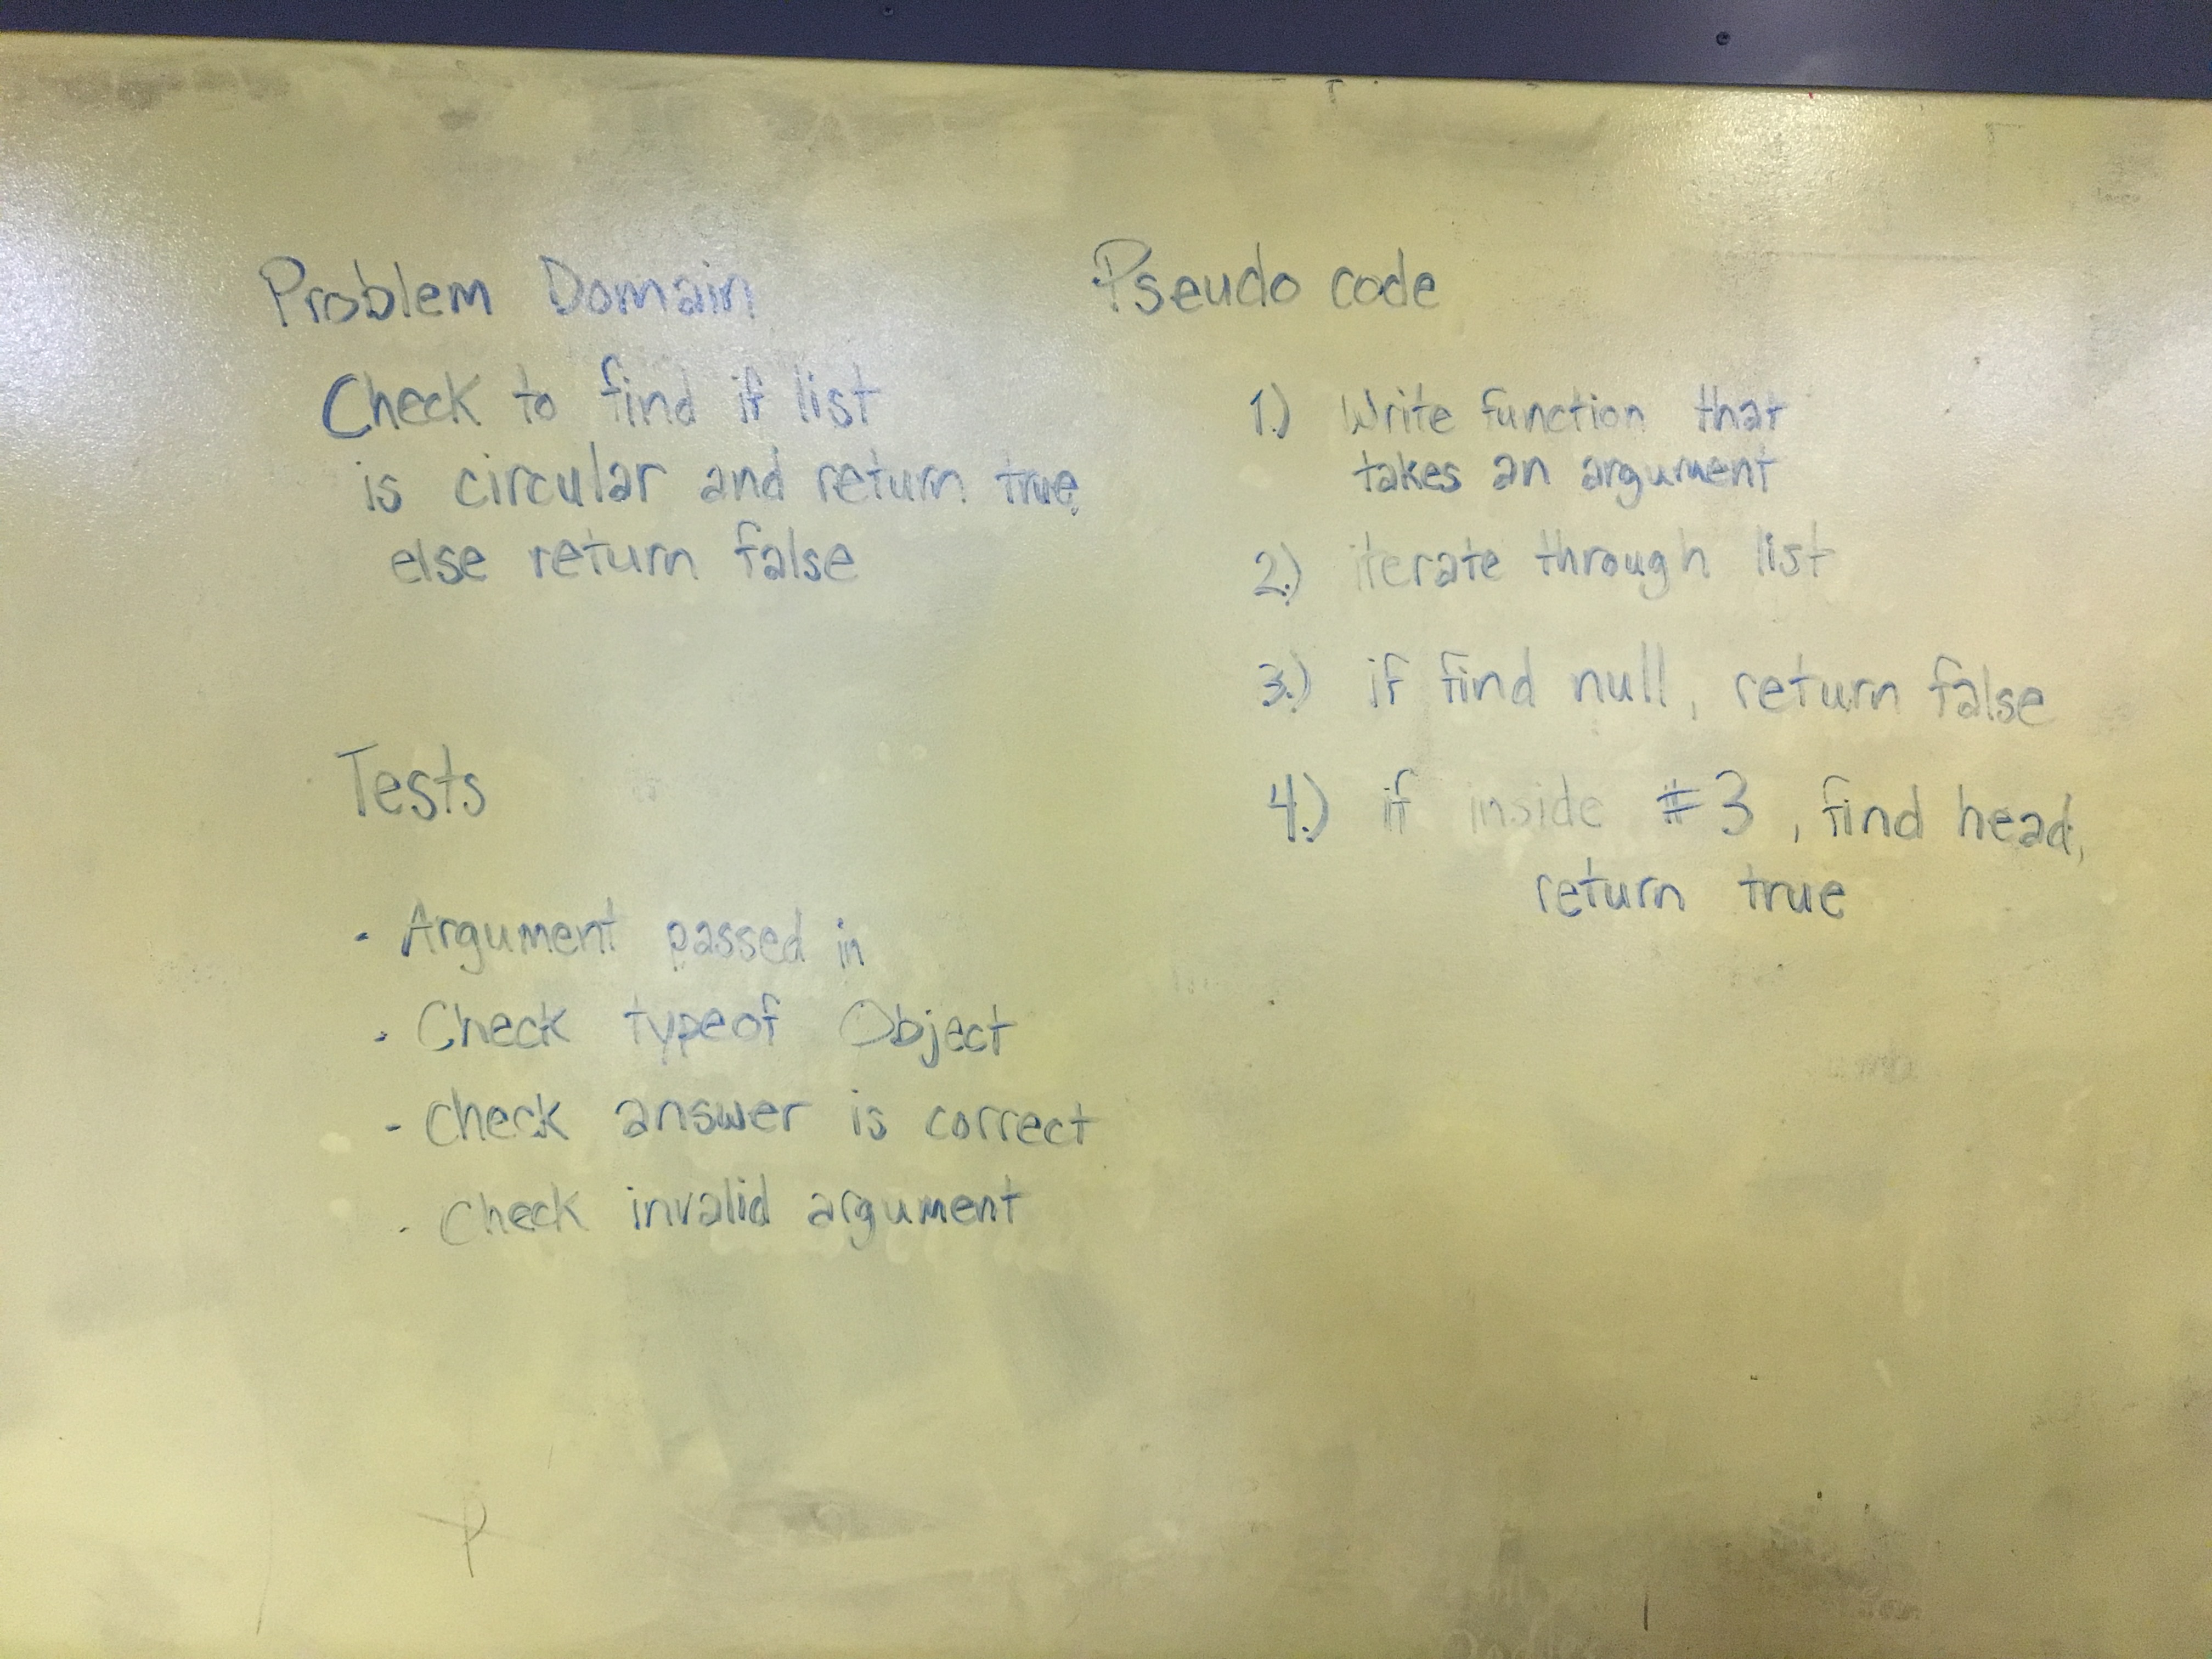 Problem Domain
Check to find if list
is circular and return true,
else return false
Tests
- Argument passed in
- Check typeof Object
- Check answer is correct
- Check invalid argument
Pseudo code
1.) Write function that
takes an argument
2.) iterate through list
3.) if find null, return false
4.) if inside #3, find head,
return true